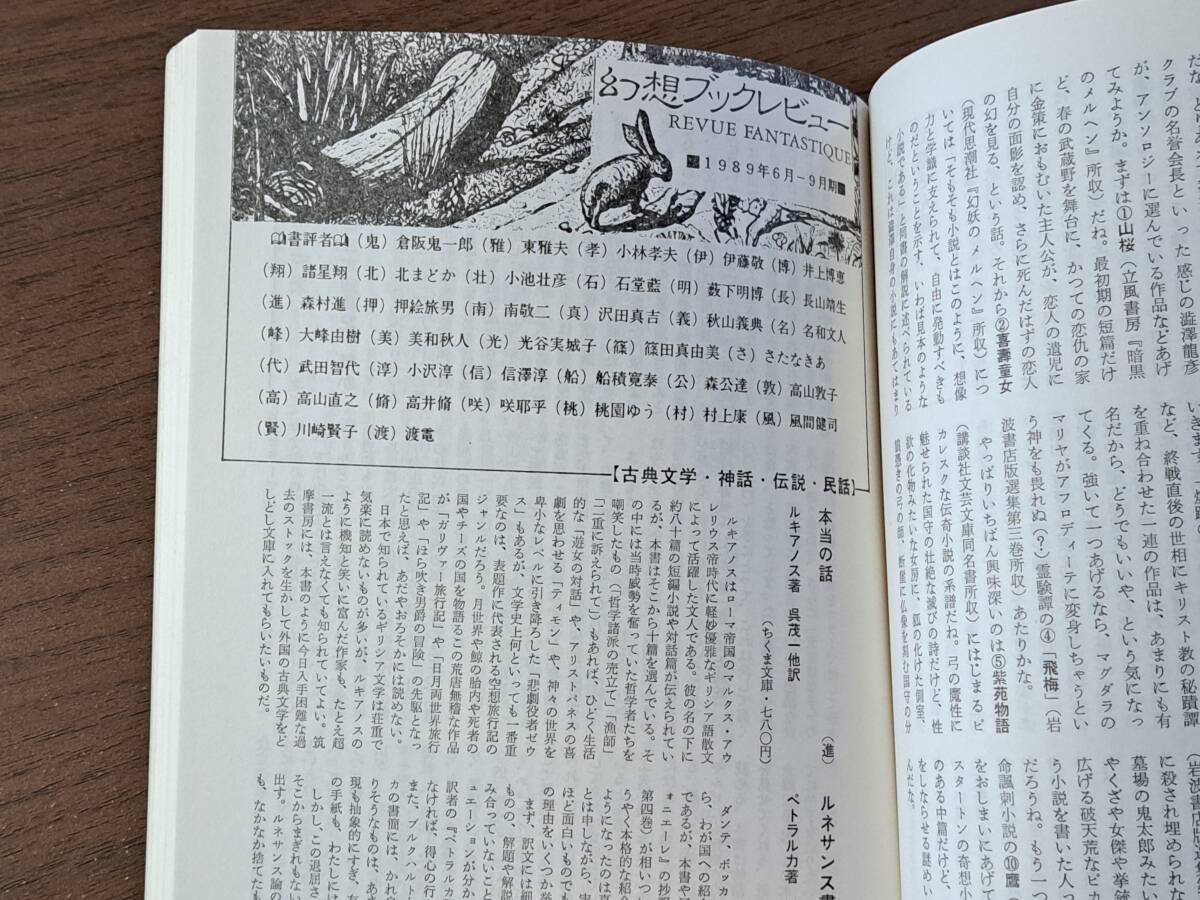 幻想ブックレビュー
REVUE FANTASTIQUE
1989年6月−9月期
書評者（鬼）倉阪鬼一郎（雅）東雅夫（孝）小林孝夫（伊）伊藤敬（博）井上博恵
（翔）諸星翔（北）北まどか（壮）小池壮彦（石）石堂藍（明）藪下明博（長）長山靖生
（進）森村進（押）押絵旅男（南）南敬二（真）沢田真吉（義）秋山義典（名）名和文人
（峰）大峰由樹（美）美和秋人（光）光谷実城子（篠）篠田真由美（さ）さたなきあ
（代）武田智代（淳）小沢淳（信）信澤淳（船）船積寛泰（公）森公達（敦）高山敦子
（高）高山直之（脩）高井脩（咲）咲耶乎（桃）桃園ゆう（村）村上康（風）風間健司
（賢）川崎賢子（渡）渡電
【古典文学・神話・伝説・民話】
本当の話　（進）
ルキアノス著　呉茂一他訳
（ちくま文庫・七八〇円）
ルキアノスはローマ帝国のマルクス・アウ
レリウス帝時代に軽妙優雅なギリシア語散文
によって活躍した文人である。彼の名の下に
約八十篇の短編小説や対話篇が伝えられてい
るが、本書はそこから十篇を選んでいる。そ
の中には当時威勢を奮っていた哲学者たちを
嘲笑したもの（「哲学諸派の売立て」「漁師」
「二重に訴えられて」）もあれば、ひどく生活
的な「遊女の対話」や、アリストパネスの喜
劇を思わせる「ティモン」や、神々の世界を
卑小なレベルに引き降ろした「悲劇役者ゼウ
ス」もあるが、文学史上何といっても一番重
要なのは、表題作に代表される空想旅行記の
ジャンルだろう。月世界や鯨の胎内や死者の
国やチーズの国を物語るこの荒唐無稽な作品
が「ガリヴァー旅行記」や「日月両世界旅行
記」や「ほら吹き男爵の冒険」の先駆となっ
たと思えば、あだやおろそかには読めない。
日本で知られているギリシア文学は荘重で
気楽に読めないものが多いが、ルキアノスの
ように機知と笑いに富んだ作家も、たとえ超
一流とは言えなくても知られていてよい。筑
摩書房には、本書のように今日入手困難な過
去のストックを生かして外国の古典文学をど
しどし文庫に入れてもらいたいものだ。
ルネサンス書
ペトラルカ著
ダンテ、ボッカ
ら、わが国への紹
であるが、本書や
ォニエーレ』の抄
第四巻）が相いつ
うやく本格的な紹
ようになったのは真
とは申しながら、実
ほど面白いものでも
の理由をいくつか挙
まず、訳文には生
ものの、解題や解説
み合っていないこと
ュエーションが分か
訳者の『ペトラルカ
なければ、得心の行
また、ブルクハルト
カの書面には、かれ
りそうなものは、あ
現も抽象的にすぎ、有
の手紙も、わたしには
しかし、この退屈さ
そこからまぎれもない
出す。ルネサンス論の
も、なかなか捨てたも
といった感じの澁澤龍彥
クラブの名誉会長
が、アンソロジーに選んでいる作品などとあげ
てみようか。まずは①山桜（立風書房『暗黒
のメルヘン』所収）だね。最初期の短篇だけ
ど、春の武蔵野を舞台に、かつての恋仇の家
に金策におもむいた主人公が、恋人の遺児に
自分の面影を認め、さらに死んだはずの恋人
の幻を見る、という話。それから②喜壽童女
（現代思潮社『幻妖のメルヘン』所収）につ
いては「そもそも小説とはこのように、想像
力と学識に支えられて、自由に発動すべきも
のだということを示す、いわば見本のような
小説である」と同書の解説に述べられている
けど、これは澁澤自身の小説にもあてはまり
いきます。
など、終戦直後の世相にキリスト教の秘蹟譚
を重ね合わせた一連の作品は、あまりにも有
名だから、どうでもいいや、という気になっ
てくる。強いて一つあげるなら、マグダラの
マリヤがアフロディーテに変身しちゃうとい
う神をも畏れぬ（？）霊験譚の④「飛梅」（岩
波書店版選集第三巻所収）あたりかな。
やっぱりいちばん興味深いのは⑤紫苑物語
（講談社文芸文庫同名書所収）にはじまるピ
カレスクな伝奇小説の系譜だね。弓の魔性に
魅せられた国守の壮絶な滅びの詩だけど、性
欲の化物みたいな女房に、狐の化けた側室、
（岩波書店
に殺され埋め
墓場の鬼太郎みたい
やくざや女傑や拳銃
広げる破天荒なピカ
う小説を書いた人っ
だろうね。もう一つ
命諷刺小説の⑩鷹（
をおしまいにあげて
スタートンの奇想小
のある中篇だけど、
をしならせる謎めい
んだな。